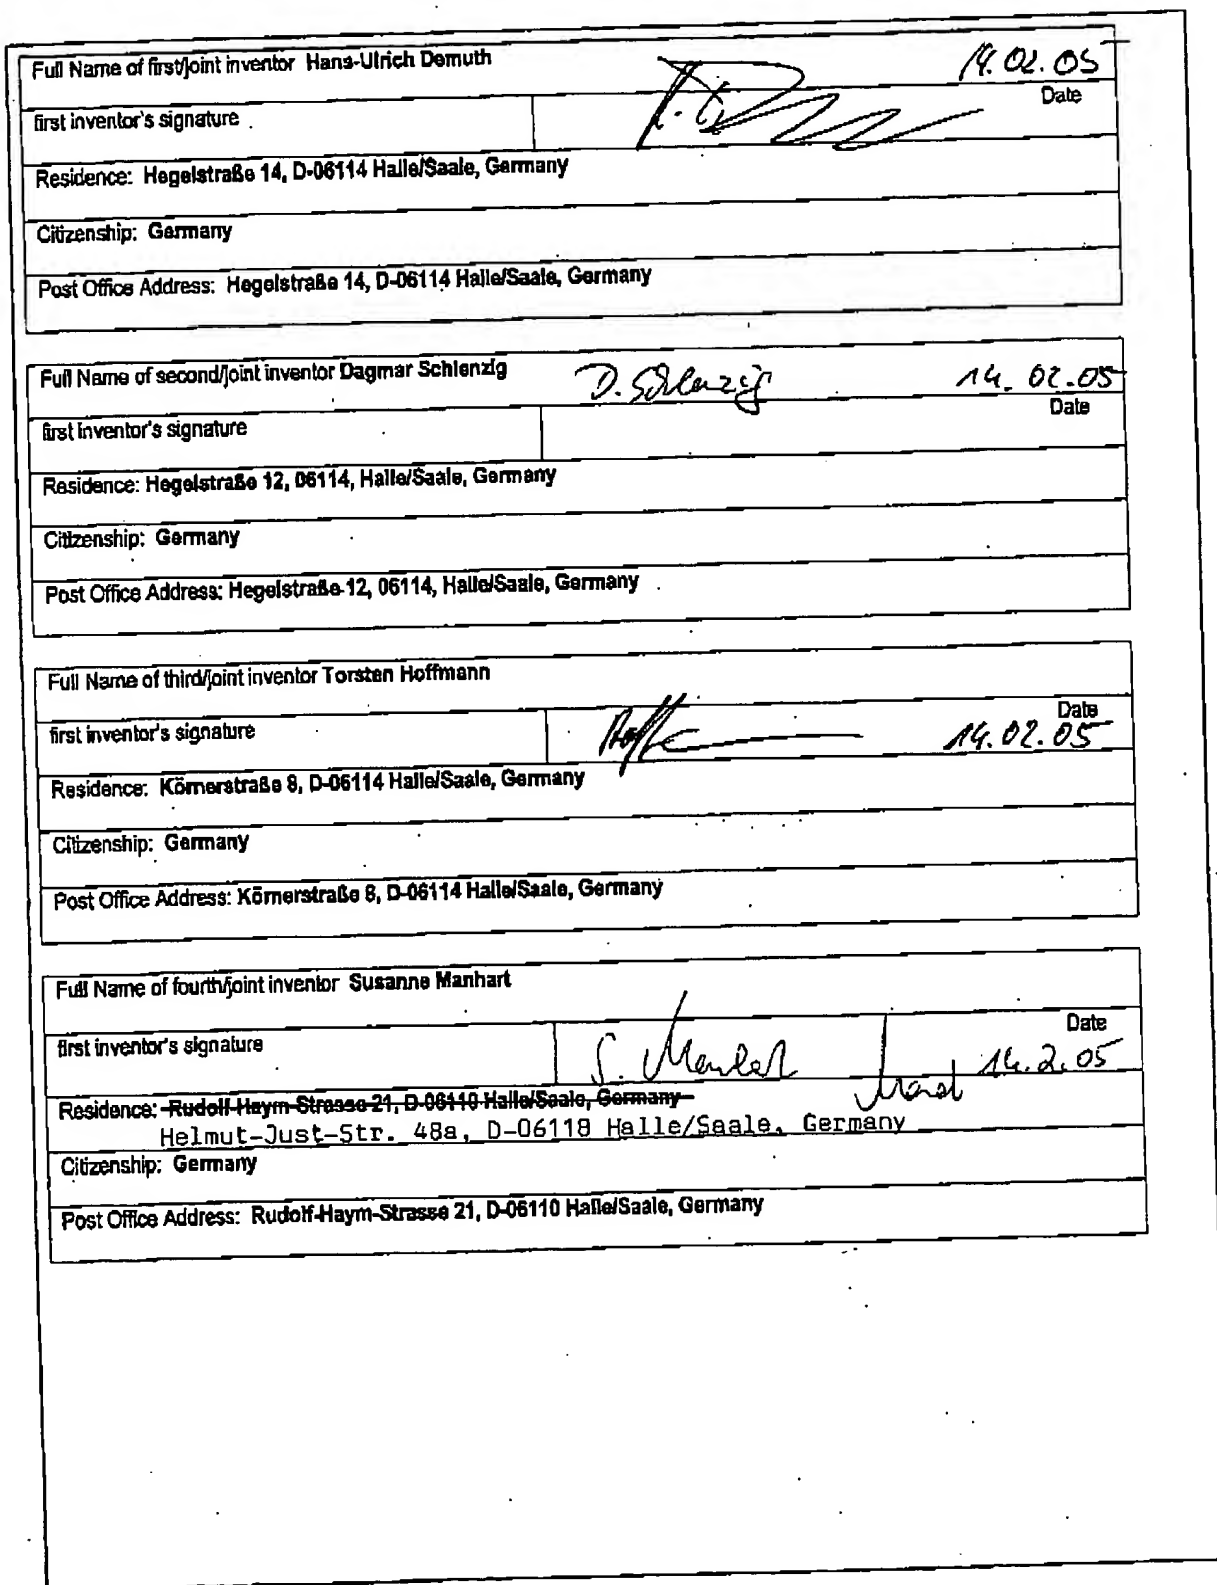 Full Name of first/joint inventor Hans-Ulrich Demuth
14.02.05
first inventor's signature
Date
Residence: Hegelstraße 14, D-06114 Halle/Saale, Germany
Citizenship: Germany
Post Office Address: Hegelstraße 14, D-06114 Halle/Saale, Germany
Full Name of second/joint inventor Dagmar Schlenzig
D. Schlenzig
14.02.05
first inventor's signature
Date
Residence: Hegelstraße 12, 06114, Halle/Saale, Germany
Citizenship: Germany
Post Office Address: Hegelstraße 12, 06114, Halle/Saale, Germany
Full Name of third/joint inventor Torsten Hoffmann
first inventor's signature
Date
14.02.05
Residence: Körnerstraße 8, D-06114 Halle/Saale, Germany
Citizenship: Germany
Post Office Address: Körnerstraße 8, D-06114 Halle/Saale, Germany
Full Name of fourth/joint inventor Susanne Manhart
first inventor's signature
S. Manhart
Date
14.2.05
Residence: Rudolf-Haym-Strasse 21, D-06110 Halle/Saale, Germany
Helmut-Just-Str. 48a, D-06118 Halle/Saale, Germany
Citizenship: Germany
Post Office Address: Rudolf-Haym-Strasse 21, D-06110 Halle/Saale, Germany